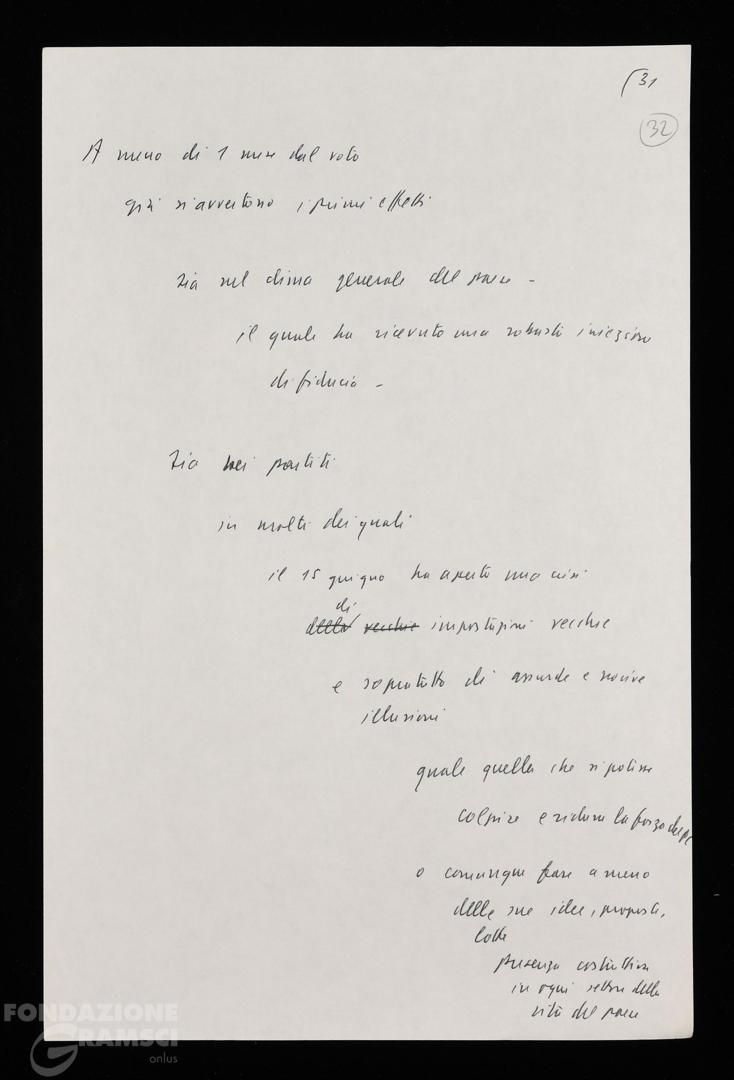 31
32
A meno di 1 mese dal voto
già si avvertono i primi effetti
sia nel clima generale del paese -
il quale ha ricevuto una robusta iniezione
di fiducia -
sia nei partiti
in molti dei quali
il 15 giugno ha aperto una crisi
di
della vecchie impostazioni vecchie
e sopratutto di assurde e nocive
illusioni
quale quella che si potesse
colpire e ridurre la forza del pc
o comunque fare a meno
delle sue idee, proposte,
lotte
presenza costruttiva
in ogni settore della
vita del paese
FONDAZIONE
GRAMSCI
onlus